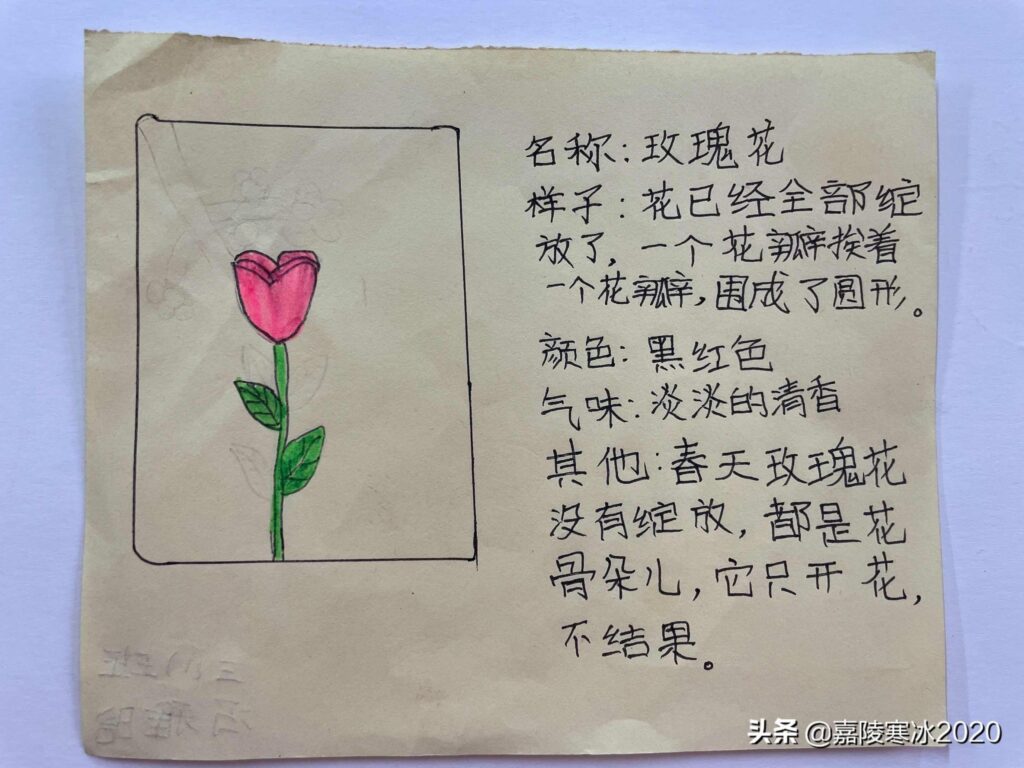 名称：玫瑰花
样子：花已经全部绽
放了，一个花瓣挨着
一个花瓣，围成了圆形。
颜色：黑红色
气味：淡淡的清香
其他：春天玫瑰花
没有绽放，都是花
骨朵儿，它只开花，
不结果。
头条 @嘉陵寒冰2020